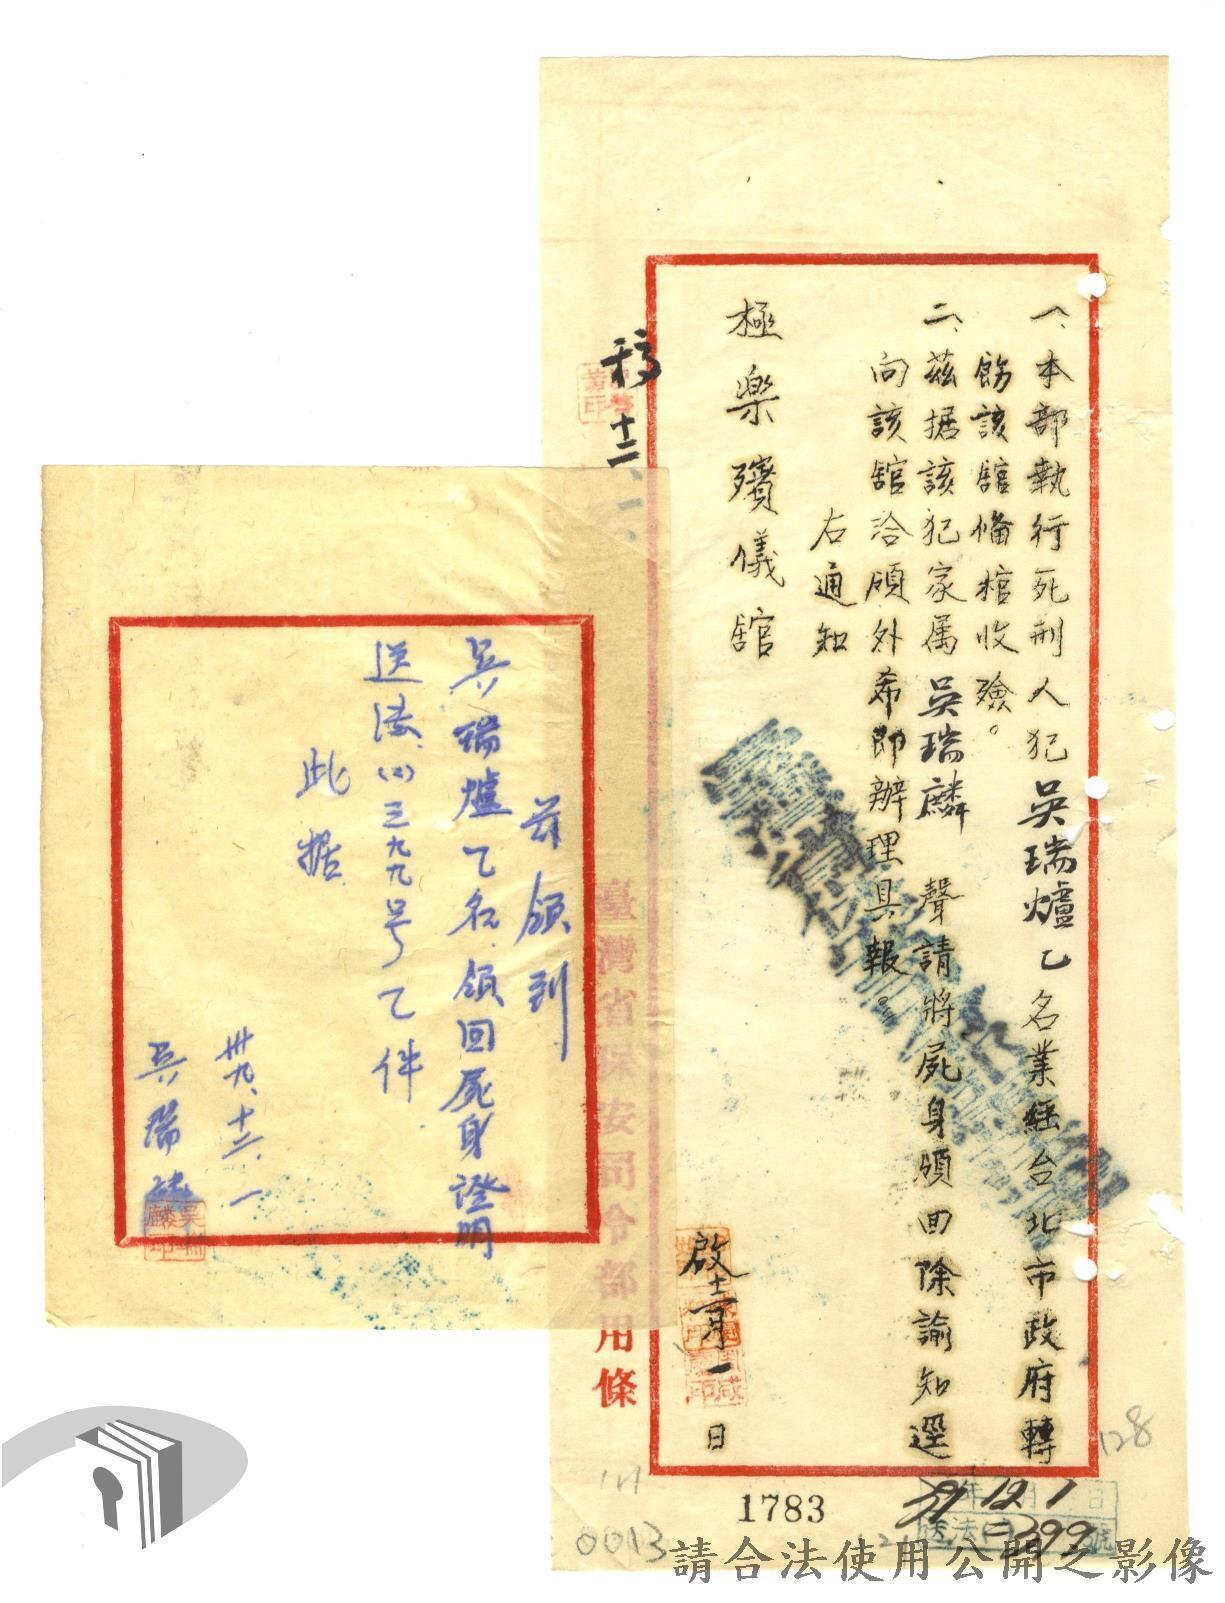 一、本部執行死刑人犯吳瑞爐乙名業經台北市政府轉
飭該舘俻棺收殮。
二、茲据該犯家属吳瑞麟 聲請將屍身領回除諭知逕
向該舘洽領外希即辦理具報。
右通知
極樂殯儀舘
啟十二月一日
稿十二、一、
臺灣省保安司令部用條
1783
39 12 1
399
128
0013
茲領到
吳瑞爐乙名、領回屍身證明
送法(2)三九九号乙件
此据
卅九、十二、一
吳瑞麟
吳瑞麟印
請合法使用公開之影像